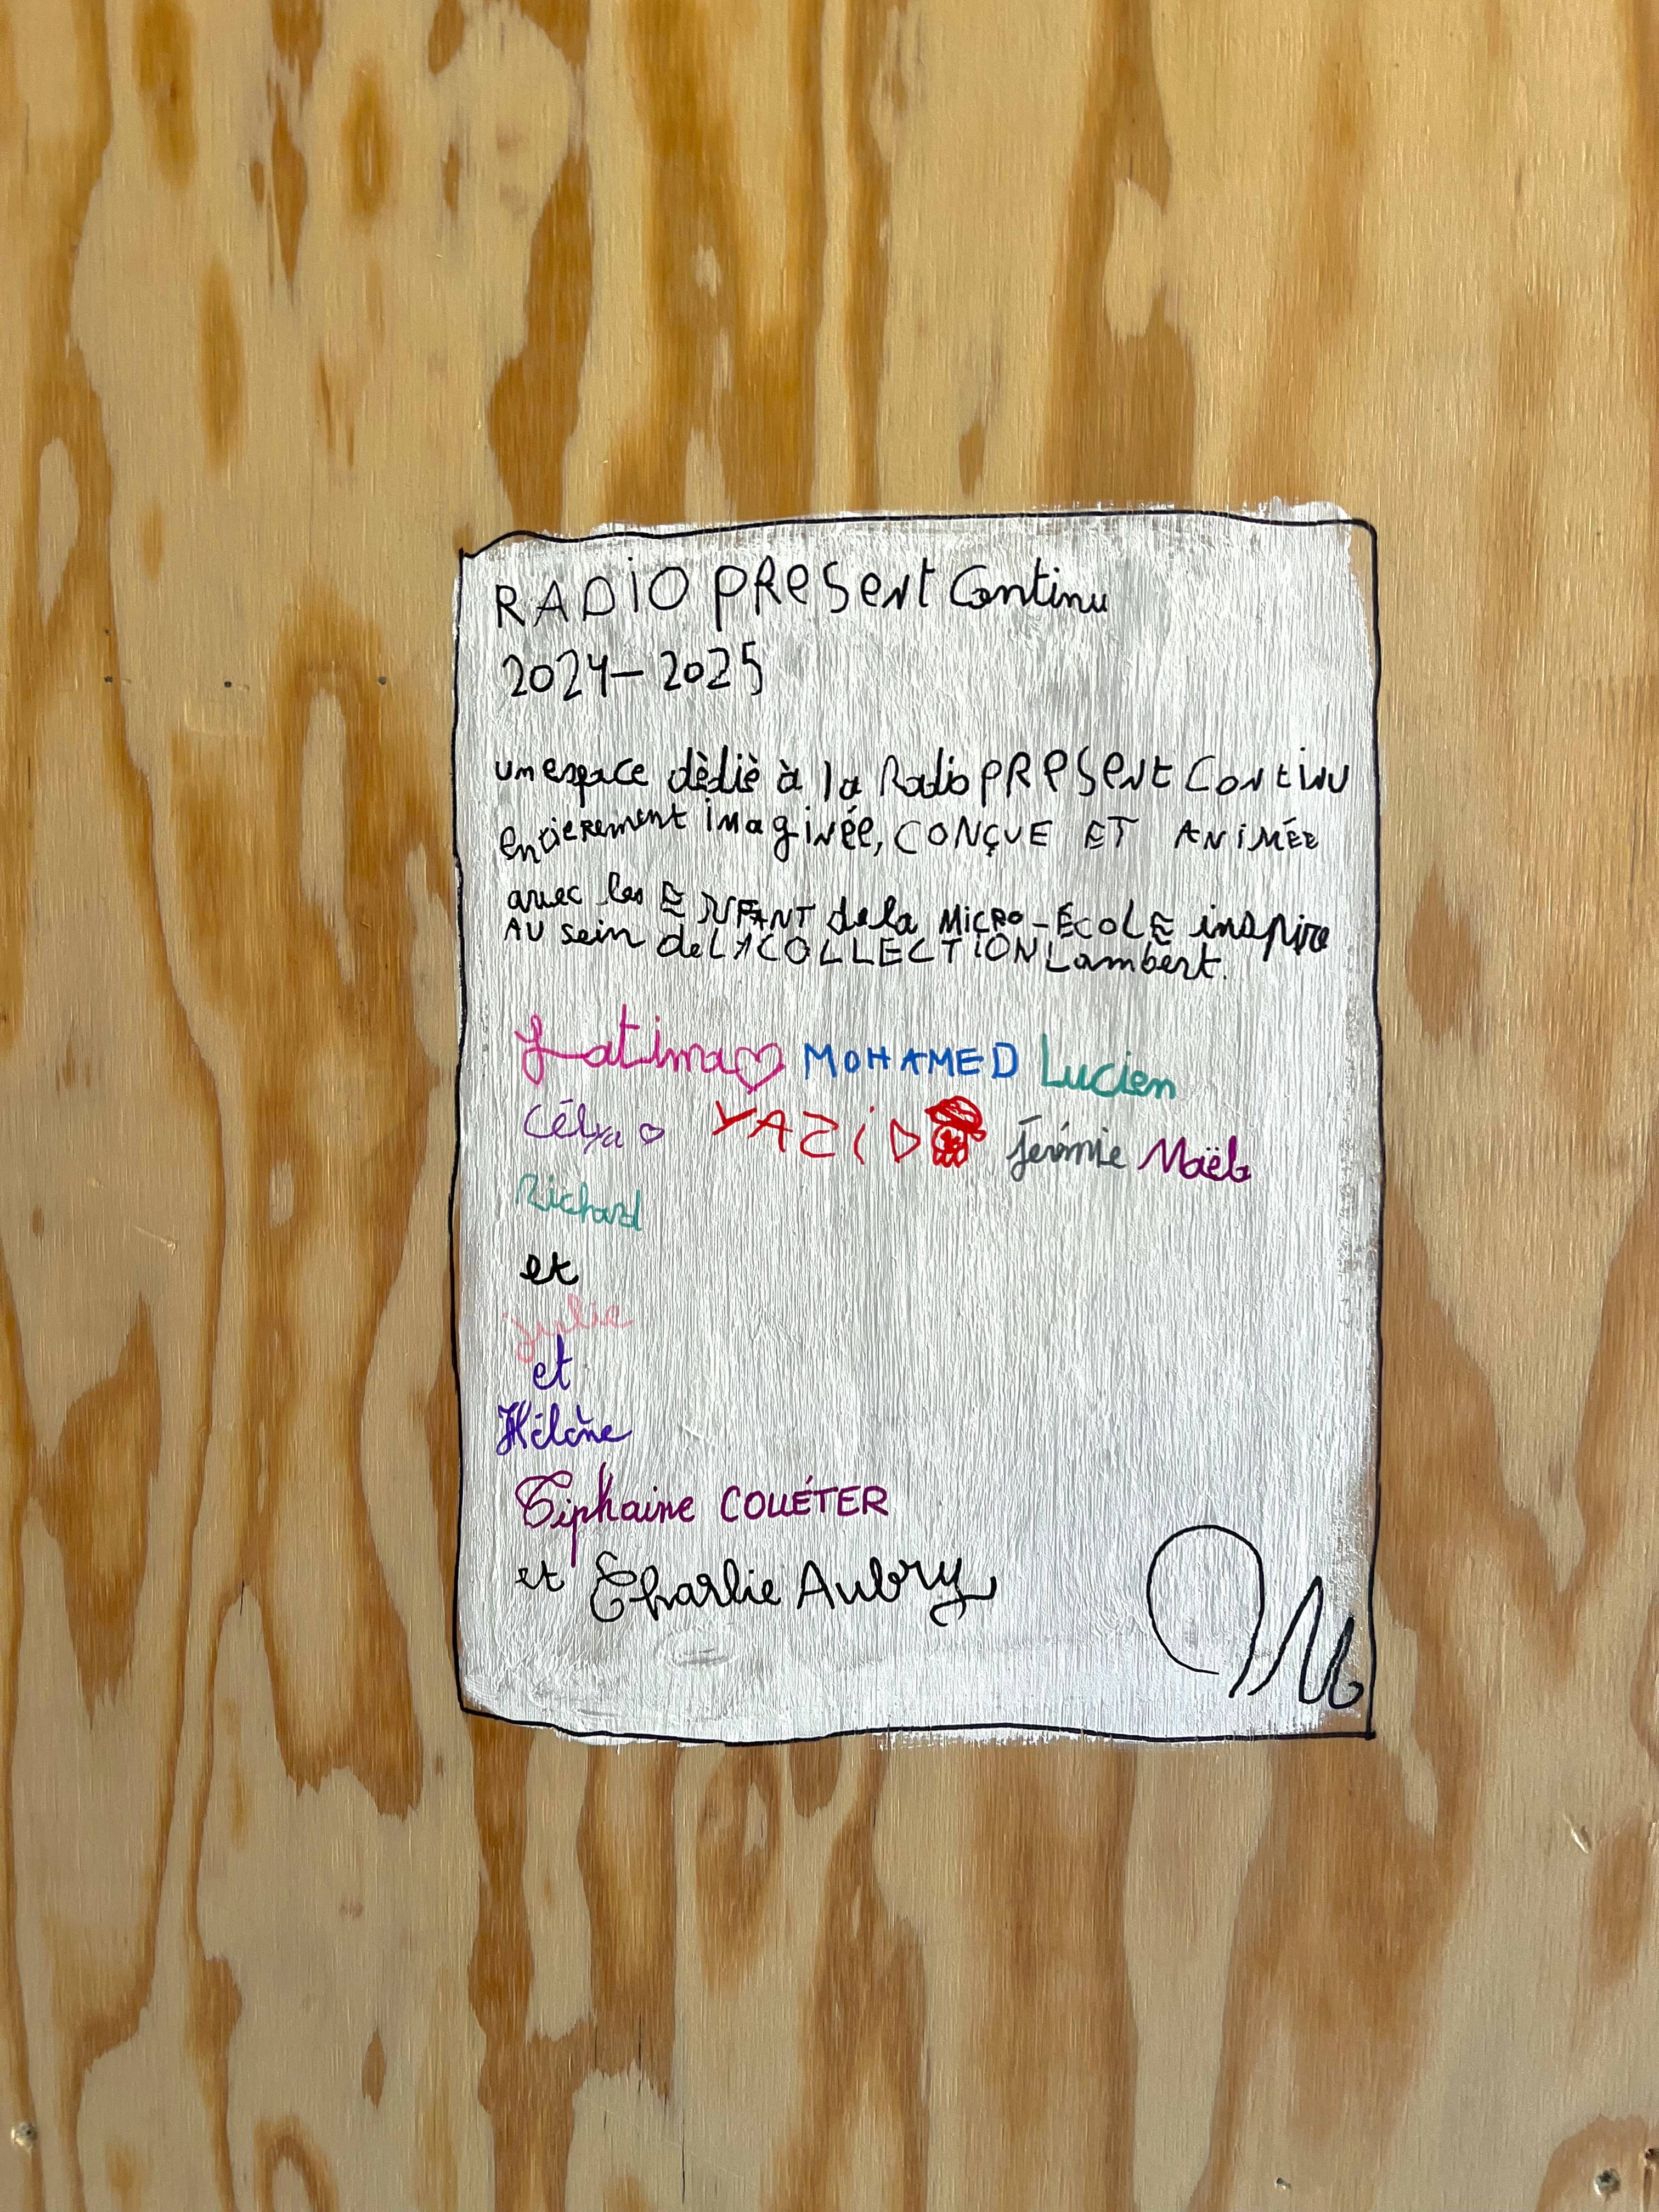 RADiO PReSent Continu
2024-2025
un espace dèdiè à la Radio PRESent Continu
entierement imaginée, CONÇUE ET ANiMÉE
avec les ENFANT de la MiCRO-ÉCOLE inspire
AU sein de LA COLLECTION Lambert.
Fatima MOHAMED Lucien
Célya YAZiD Jérémie Maëla
Richard
et
Julie
et
Hélène
Tiphaine COUÉTER
et Charlie Aubry